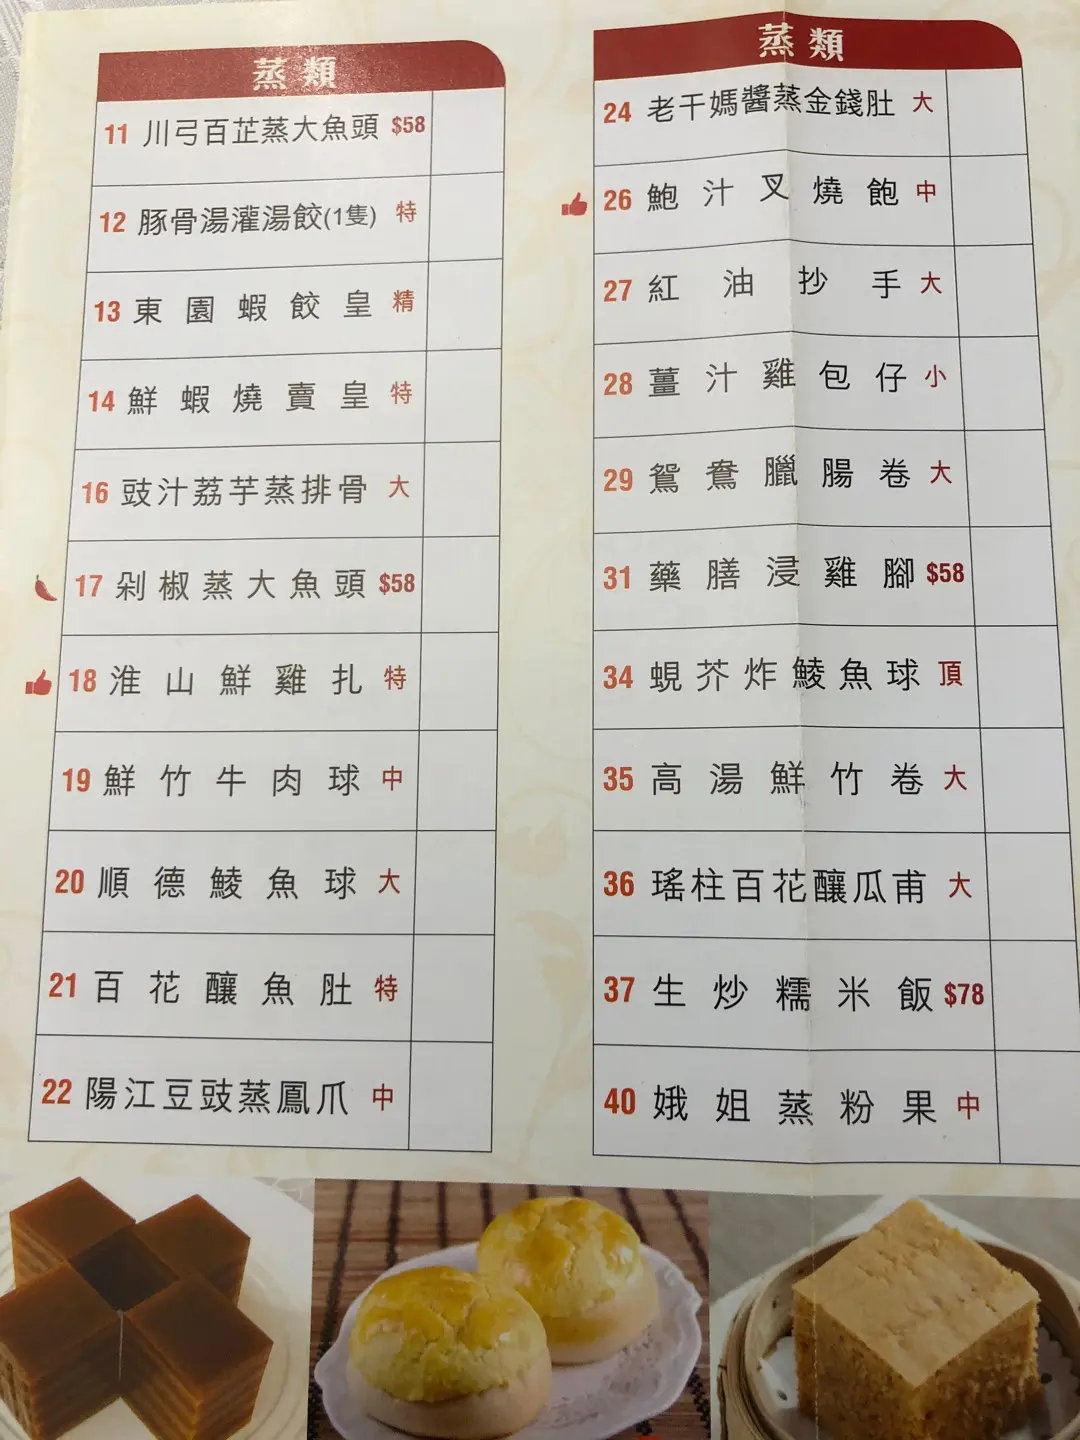 蒸類
11 川弓百芷蒸大魚頭 $58
12 豚骨湯灌湯餃(1隻) 特
13 東園蝦餃皇 精
14 鮮蝦燒賣皇 特
16 豉汁荔芋蒸排骨 大
17 剁椒蒸大魚頭 $58
18 淮山鮮雞扎 特
19 鮮竹牛肉球 中
20 順德鯪魚球 大
21 百花釀魚肚 特
22 陽江豆豉蒸鳳爪 中
蒸類
24 老干媽醬蒸金錢肚 大
26 鮑汁叉燒飽 中
27 紅油抄手 大
28 薑汁雞包仔 小
29 鴛鴦臘腸卷 大
31 藥膳浸雞腳 $58
34 蜆芥炸鯪魚球 頂
35 高湯鮮竹卷 大
36 瑤柱百花釀瓜甫 大
37 生炒糯米飯 $78
40 娥姐蒸粉果 中